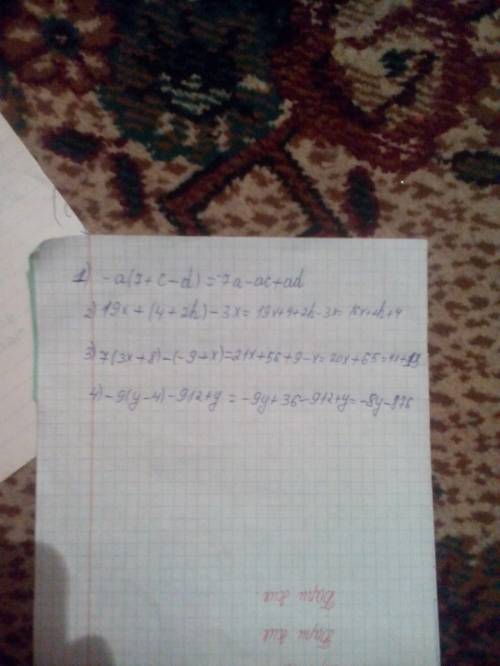 1) -a(7+c-d)=-7a-ac+ad
2) 19x+(4+2h)-3x=19x+4+2h-3x=16x+2h+4
3) 7(3x+8)-(-9+x)=21x+56+9-x=20x+65
4) -9(y-4)-912+y=-9y+36-912+y=-8y-876